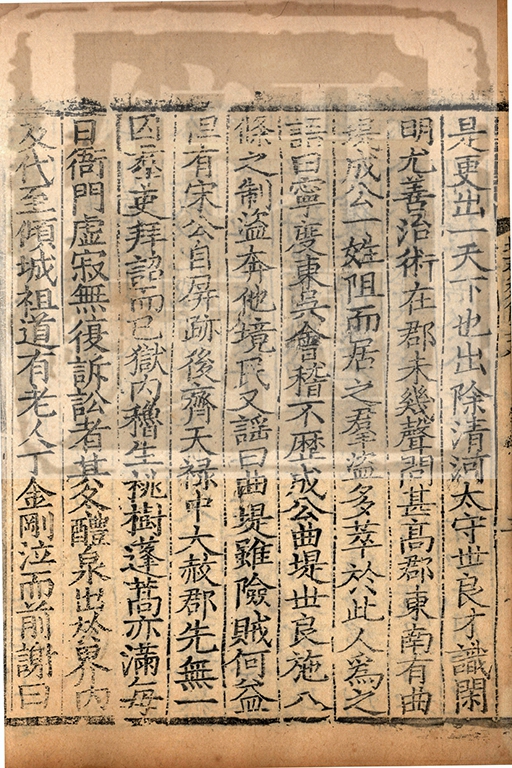 是更出一天下也出除清河太守世良才識閑
明尤善治術在郡未幾聲問甚高郡東南有曲
堤成公一姓阻而居之羣盜多萃於此人爲之
語曰寧度東吳會稽不歷成公曲堤世良施八
條之制盜奔他境民又謠曰曲堤雖險賊何益
但有宋公自屏跡後齊天禄中大赦郡先無一
囚羣吏拜詔而已獄内穭生桃樹蓬蒿亦滿每
日衙門虛寂無復訴訟者其冬醴泉出於界内
及代至傾城祖道有老人丁金剛泣而前謝曰